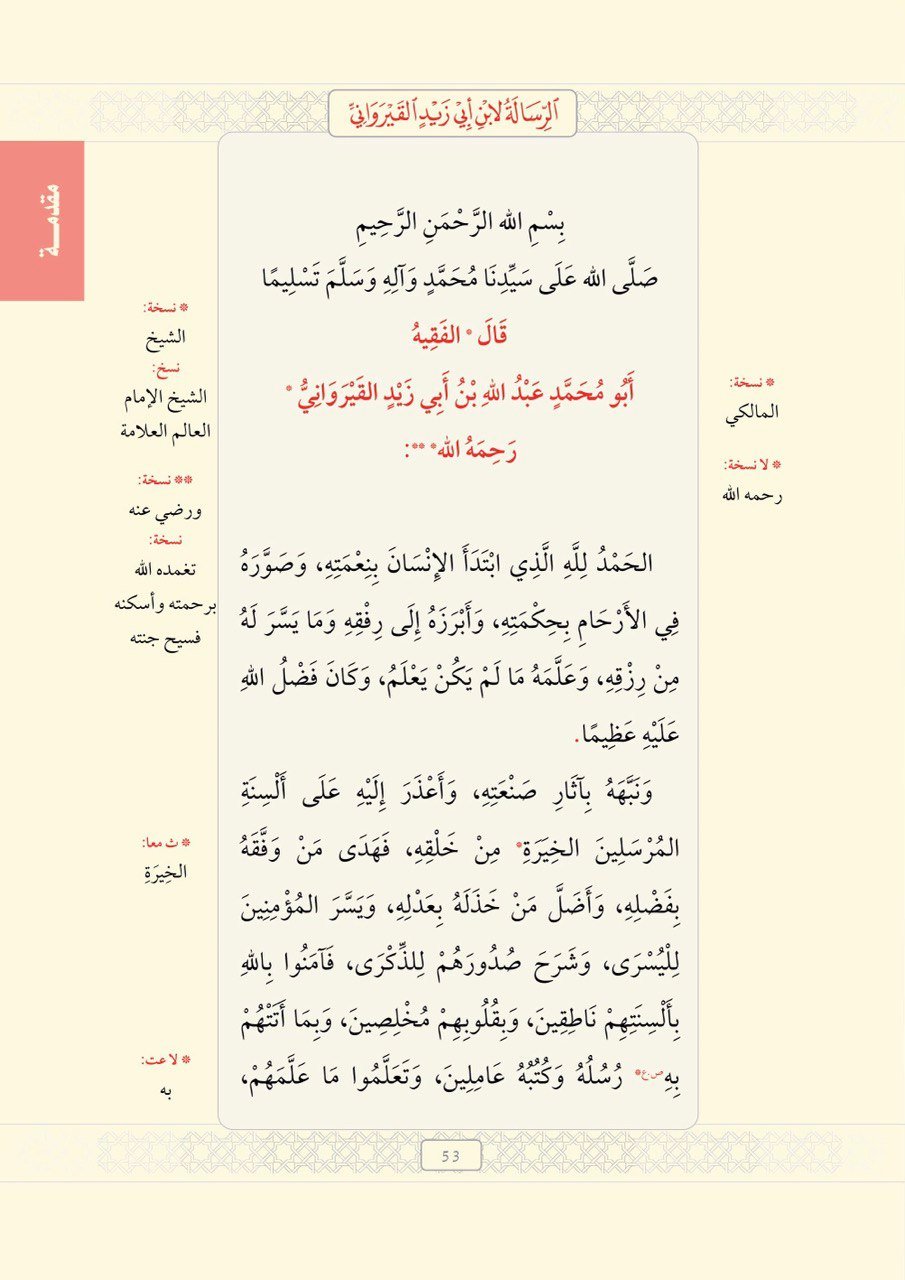 الرِّسَالَةُ لِابْنِ أَبِي زَيْدٍ القَيْرَوَانِيِّ
مقدمــة
بِسْمِ الله الرَّحْمَنِ الرَّحِيمِ
صَلَّى الله عَلَى سَيِّدِنَا مُحَمَّدٍ وَآلِهِ وَسَلَّمَ تَسْلِيمًا
قَالَ * الفَقِيهُ
أَبُو مُحَمَّدٍ عَبْدُ اللهِ بْنُ أَبِي زَيْدٍ القَيْرَوَانِيُّ *
رَحِمَهُ الله* **:
الحَمْدُ لِلَّهِ الَّذِي ابْتَدَأَ الإِنْسَانَ بِنِعْمَتِهِ، وَصَوَّرَهُ
فِي الأَرْحَامِ بِحِكْمَتِهِ، وَأَبْرَزَهُ إِلَى رِفْقِهِ وَمَا يَسَّرَ لَهُ
مِنْ رِزْقِهِ، وَعَلَّمَهُ مَا لَمْ يَكُنْ يَعْلَمُ، وَكَانَ فَضْلُ اللهِ
عَلَيْهِ عَظِيمًا.
وَنَبَّهَهُ بِآثَارِ صَنْعَتِهِ، وَأَعْذَرَ إِلَيْهِ عَلَى أَلْسِنَةِ
المُرْسَلِينَ الخِيَرَةِ* مِنْ خَلْقِهِ، فَهَدَى مَنْ وَفَّقَهُ
بِفَضْلِهِ، وَأَضَلَّ مَنْ خَذَلَهُ بِعَدْلِهِ، وَيَسَّرَ المُؤْمِنِينَ
لِلْيُسْرَى، وَشَرَحَ صُدُورَهُمْ لِلذِّكْرَى، فَآمَنُوا بِاللهِ
بِأَلْسِنَتِهِمْ نَاطِقِينَ، وَبِقُلُوبِهِمْ مُخْلِصِينَ، وَبِمَا أَتَتْهُمْ
بِهِ ص.ع* رُسُلُهُ وَكُتُبُهُ عَامِلِينَ، وَتَعَلَّمُوا مَا عَلَّمَهُمْ،
* نسخة:
المالكي
* لا نسخة:
رحمه الله
* نسخة:
الشيخ
نسخ:
الشيخ الإمام
العالم العلامة
** نسخة:
ورضي عنه
نسخة:
تغمده الله
برحمته وأسكنه
فسيح جنته
* ث معا:
الخِيرَةِ
* لا عت:
به
53